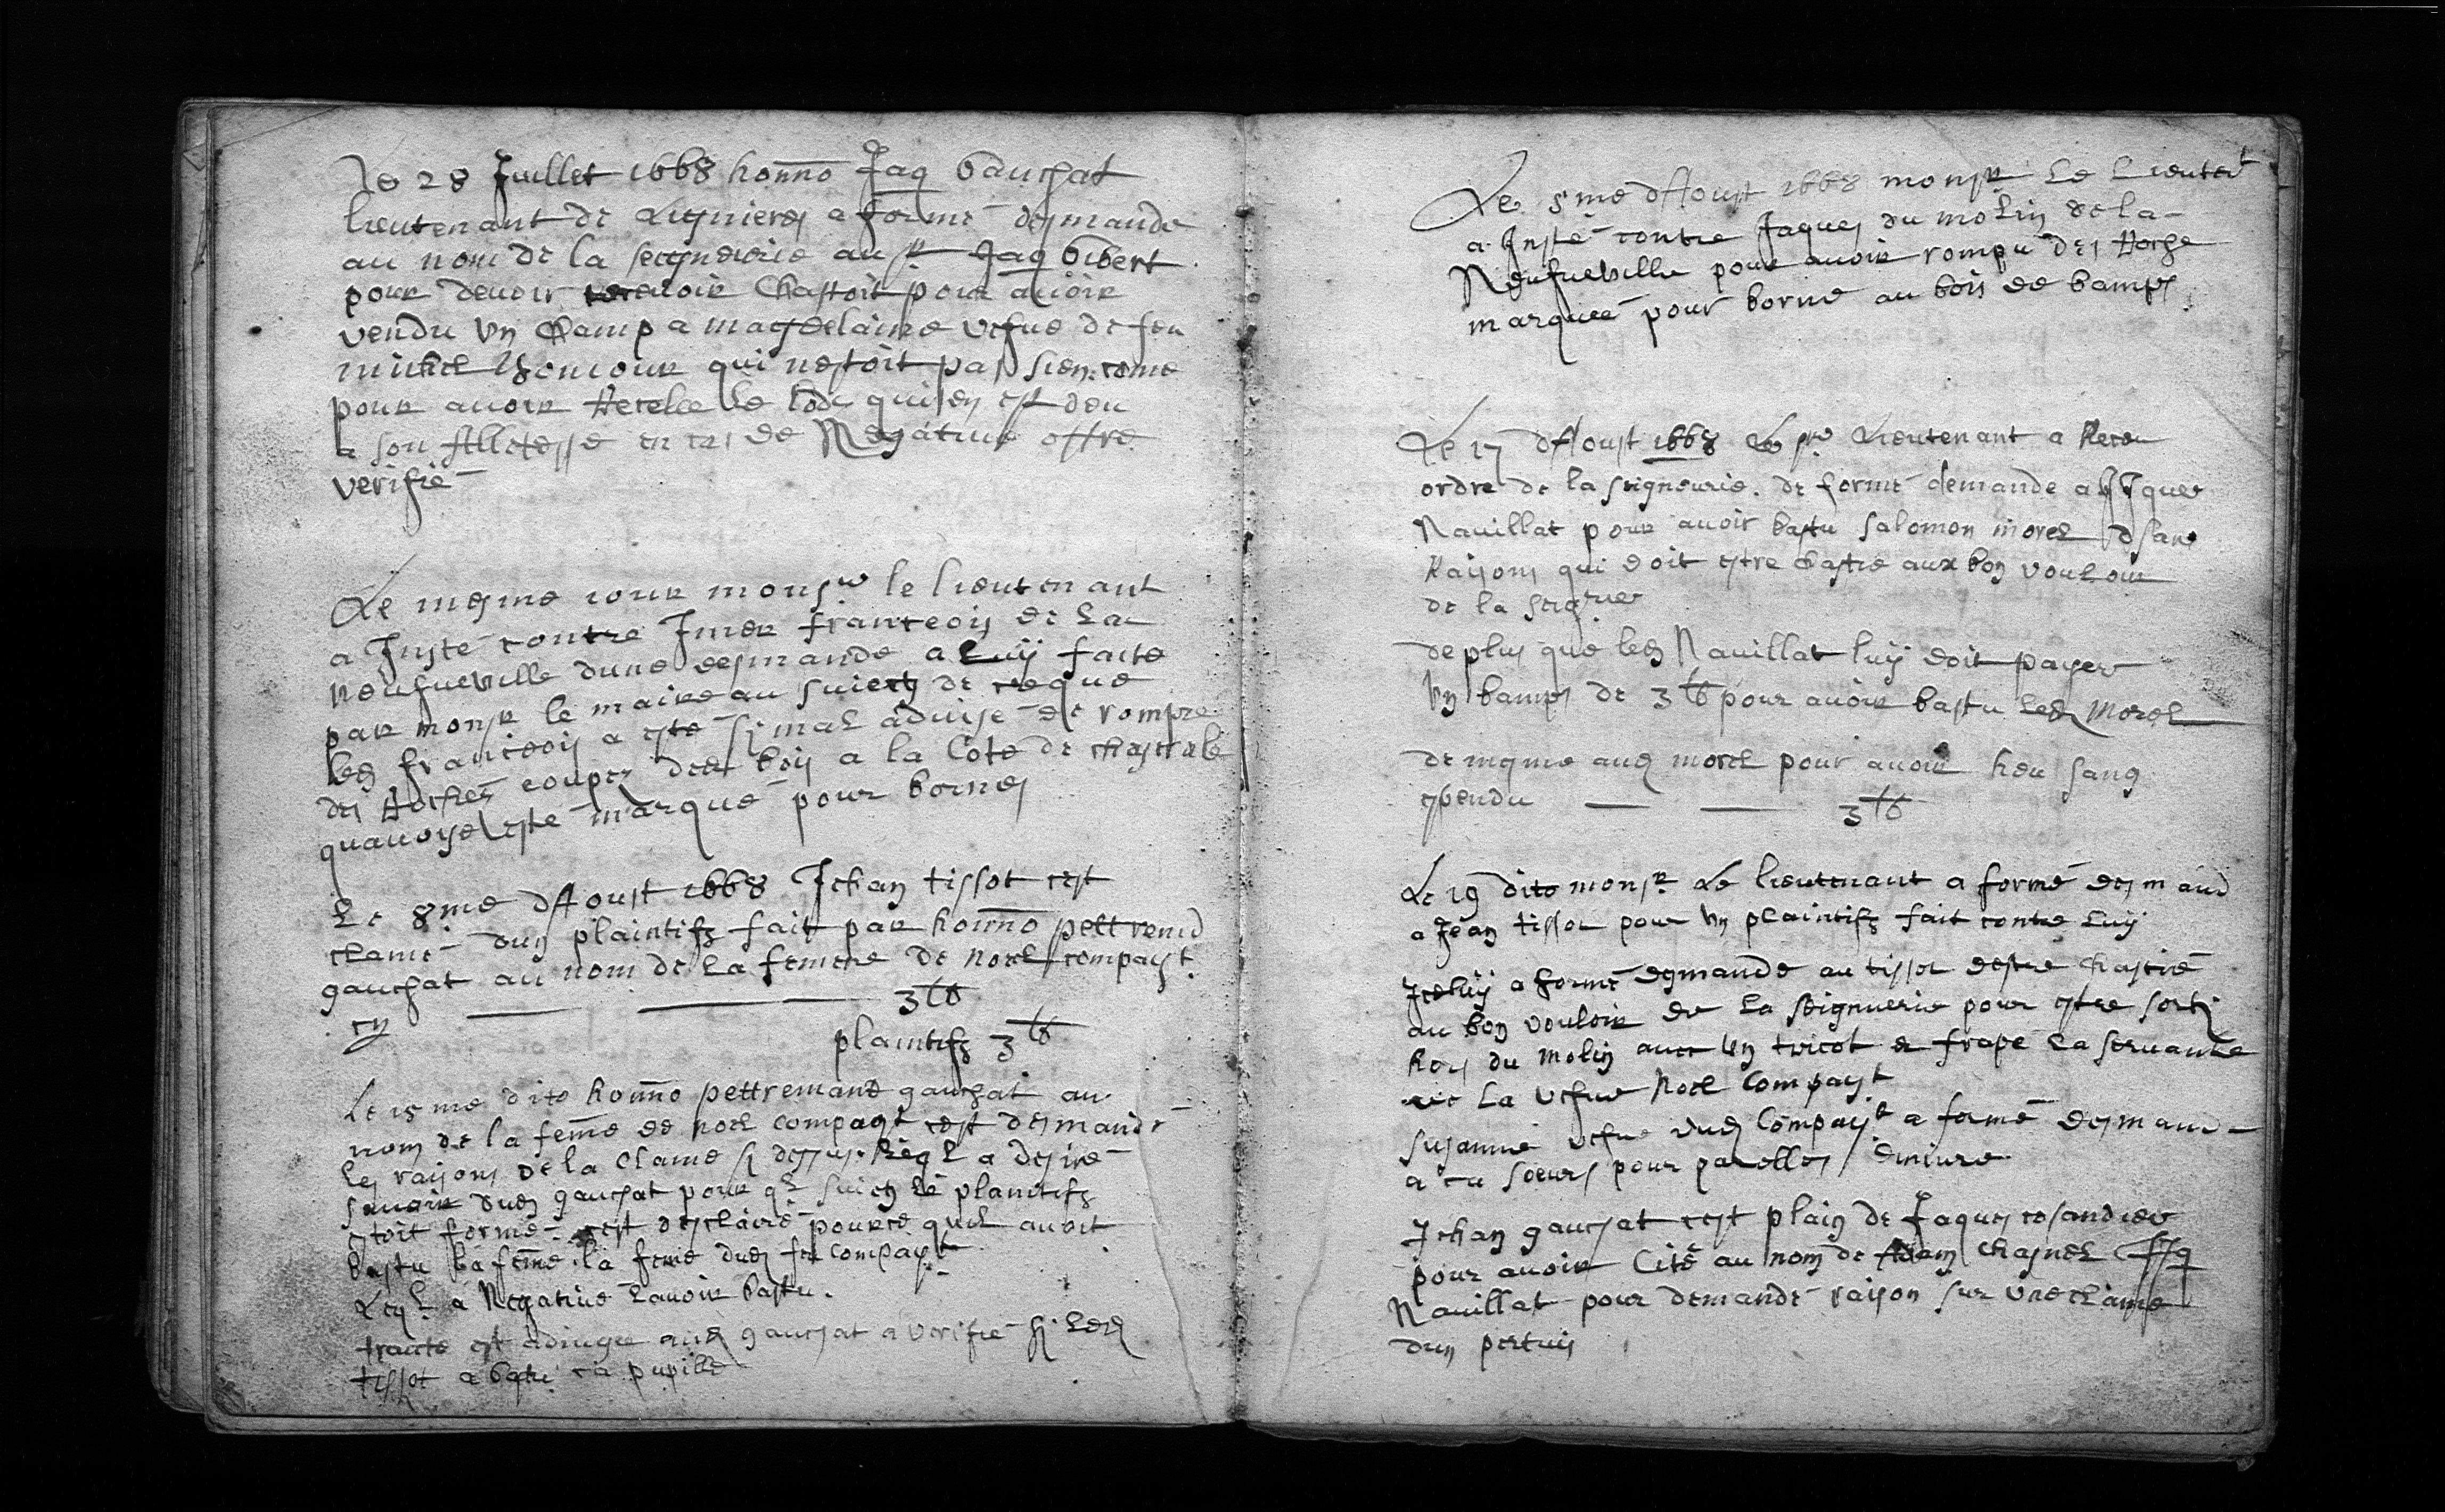 Le 28 Juillet 1668 honno Jaq Gauchat
lieutenant de Lignieres a formé desmande
au nom de la seigneurie au sr Jaq Gibert
pour devoir avoir Chastoit pour avoir
vendu un Champ a magdelaine vefue de feu
michel Bonjour qui nestoit pas sien. come
pour avoir Recelle le lode qui en est deu
a son Alltesse en cas de Negative offre
verifié
Le mesme jour monsr le lieutenant
a Insté contre Imer franceois de La
neufueville dune desmande a Luy faite
par monsr le maire au suiect de ceque
led franceois a esté sy mal advisé de rompre
des Hoches couper des bois a la Cote de chastrale
quavoyet esté marqué pour bornes
Le 8me dAoust 1668 Jehan tissot cest
clamé dun plaintifz fait par honno pettremand
gauchat au nom de La femme de noel compayt
cy 3 lb
plaintifz 3 lb
Le 15me dito honno pettremand gauchat au
nom de la feme de noel compayt cest desmandé
Les raisons de la Clame sy dessus. Leql a desiré
savoir dud gauchat pour ql suict le plaintifz
estoit formé. cest desclairé pource quil avoit
bastu la feme dud feu Compayt
Leql a Negative Lavoir bastu.
traite est adiugee aud gauchat a verifié sy Led
tissot a batu sa pupille
Le 5me dAoust 1668 monsr Le Lieutent
a Insté contre Jaques du molin de la
Neufueville pour avoir rompu des Hoche
marquee pour borne au bois de bamps
Le 17 dAoust 1668 Le sr Lieutenant a Receu
ordre de la seigneurie. de formé demande a Jaques
Navillat pour avoir bastu Salomon morel sans
Raisons qui doit estre Chastie aux bon vouloir
de la seigrie
de plus que led Navillat luy doit payer
Un bamps de 3 lb pour avoir bastu Led Morel
de mesme aud morel pour avoir heu sang
espendu 3 lb
Le 19 dito monsr Le lieutenant a formé desmand
a Jean tissot pour un plaintifz fait contre Luy
Iceluy a formé desmande au tissot destre chastié
au bon vouloir de La Seigneurie pour estre sorti
hors du Molin avec un tricot et frapé La servante
La vefue Noel Compayt
Susanne vefue dud Compayt a formé desmand
a sa soeurs pour parolles Deniure
Jehan gauchat cest plain de Jaques cosandier
pour avoir Cité au nom de Adam Chasnel
Navillat pour demandé raison sur une clame
dun pertuis